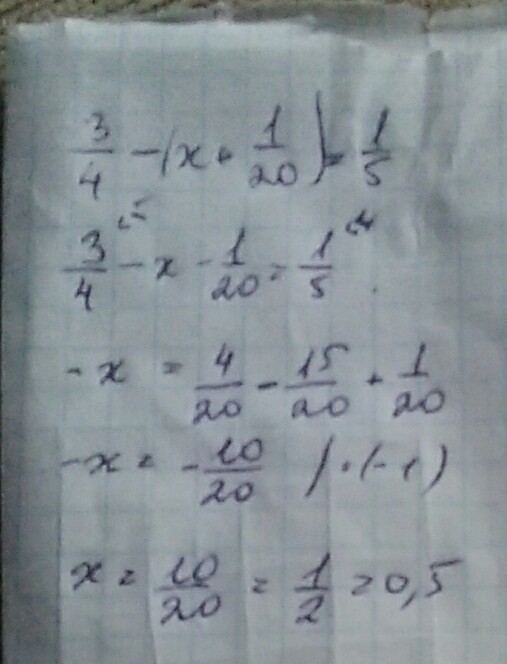 3/4 - (x + 1/20) = 1/5
3/4 - x - 1/20 = 1/5
-x = 4/20 - 15/20 + 1/20
-x = -10/20 / · (-1)
x = 10/20 = 1/2 = 0,5